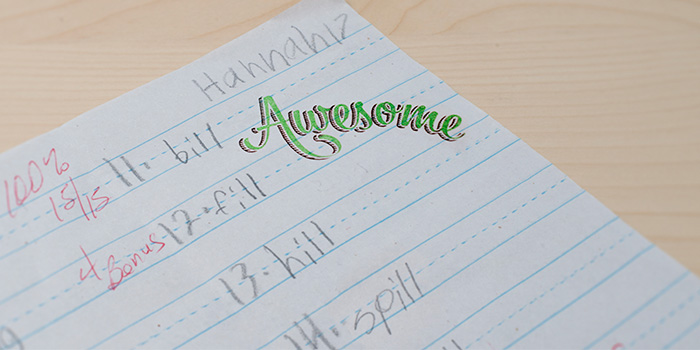 Hannah 12
Awesome
100%
15/15
11. bill
4 Bonus
12. fill
13. hill
14. spill